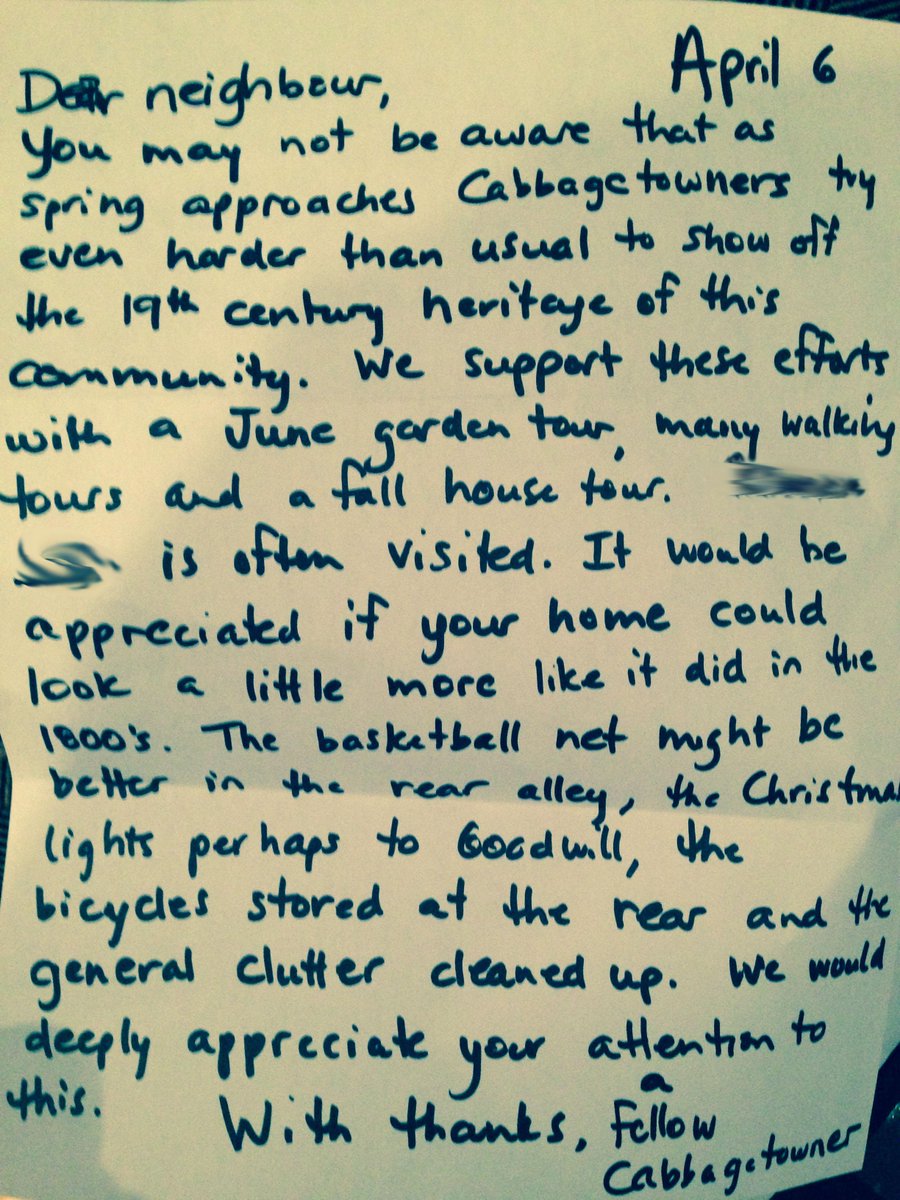 April 6
Dear neighbour,
You may not be aware that as
spring approaches Cabbagetowners try
even harder than usual to show off
the 19th century heritage of this
community. We support these efforts
with a June garden tour, many walking
tours and a fall house tour.
is often visited. It would be
appreciated if your home could
look a little more like it did in the
1800's. The basketball net might be
better in the rear alley, the Christmas
lights perhaps to Goodwill, the
bicycles stored at the rear and the
general clutter cleaned up. We would
deeply appreciate your attention to
this.
With thanks, a fellow
Cabbagetowner